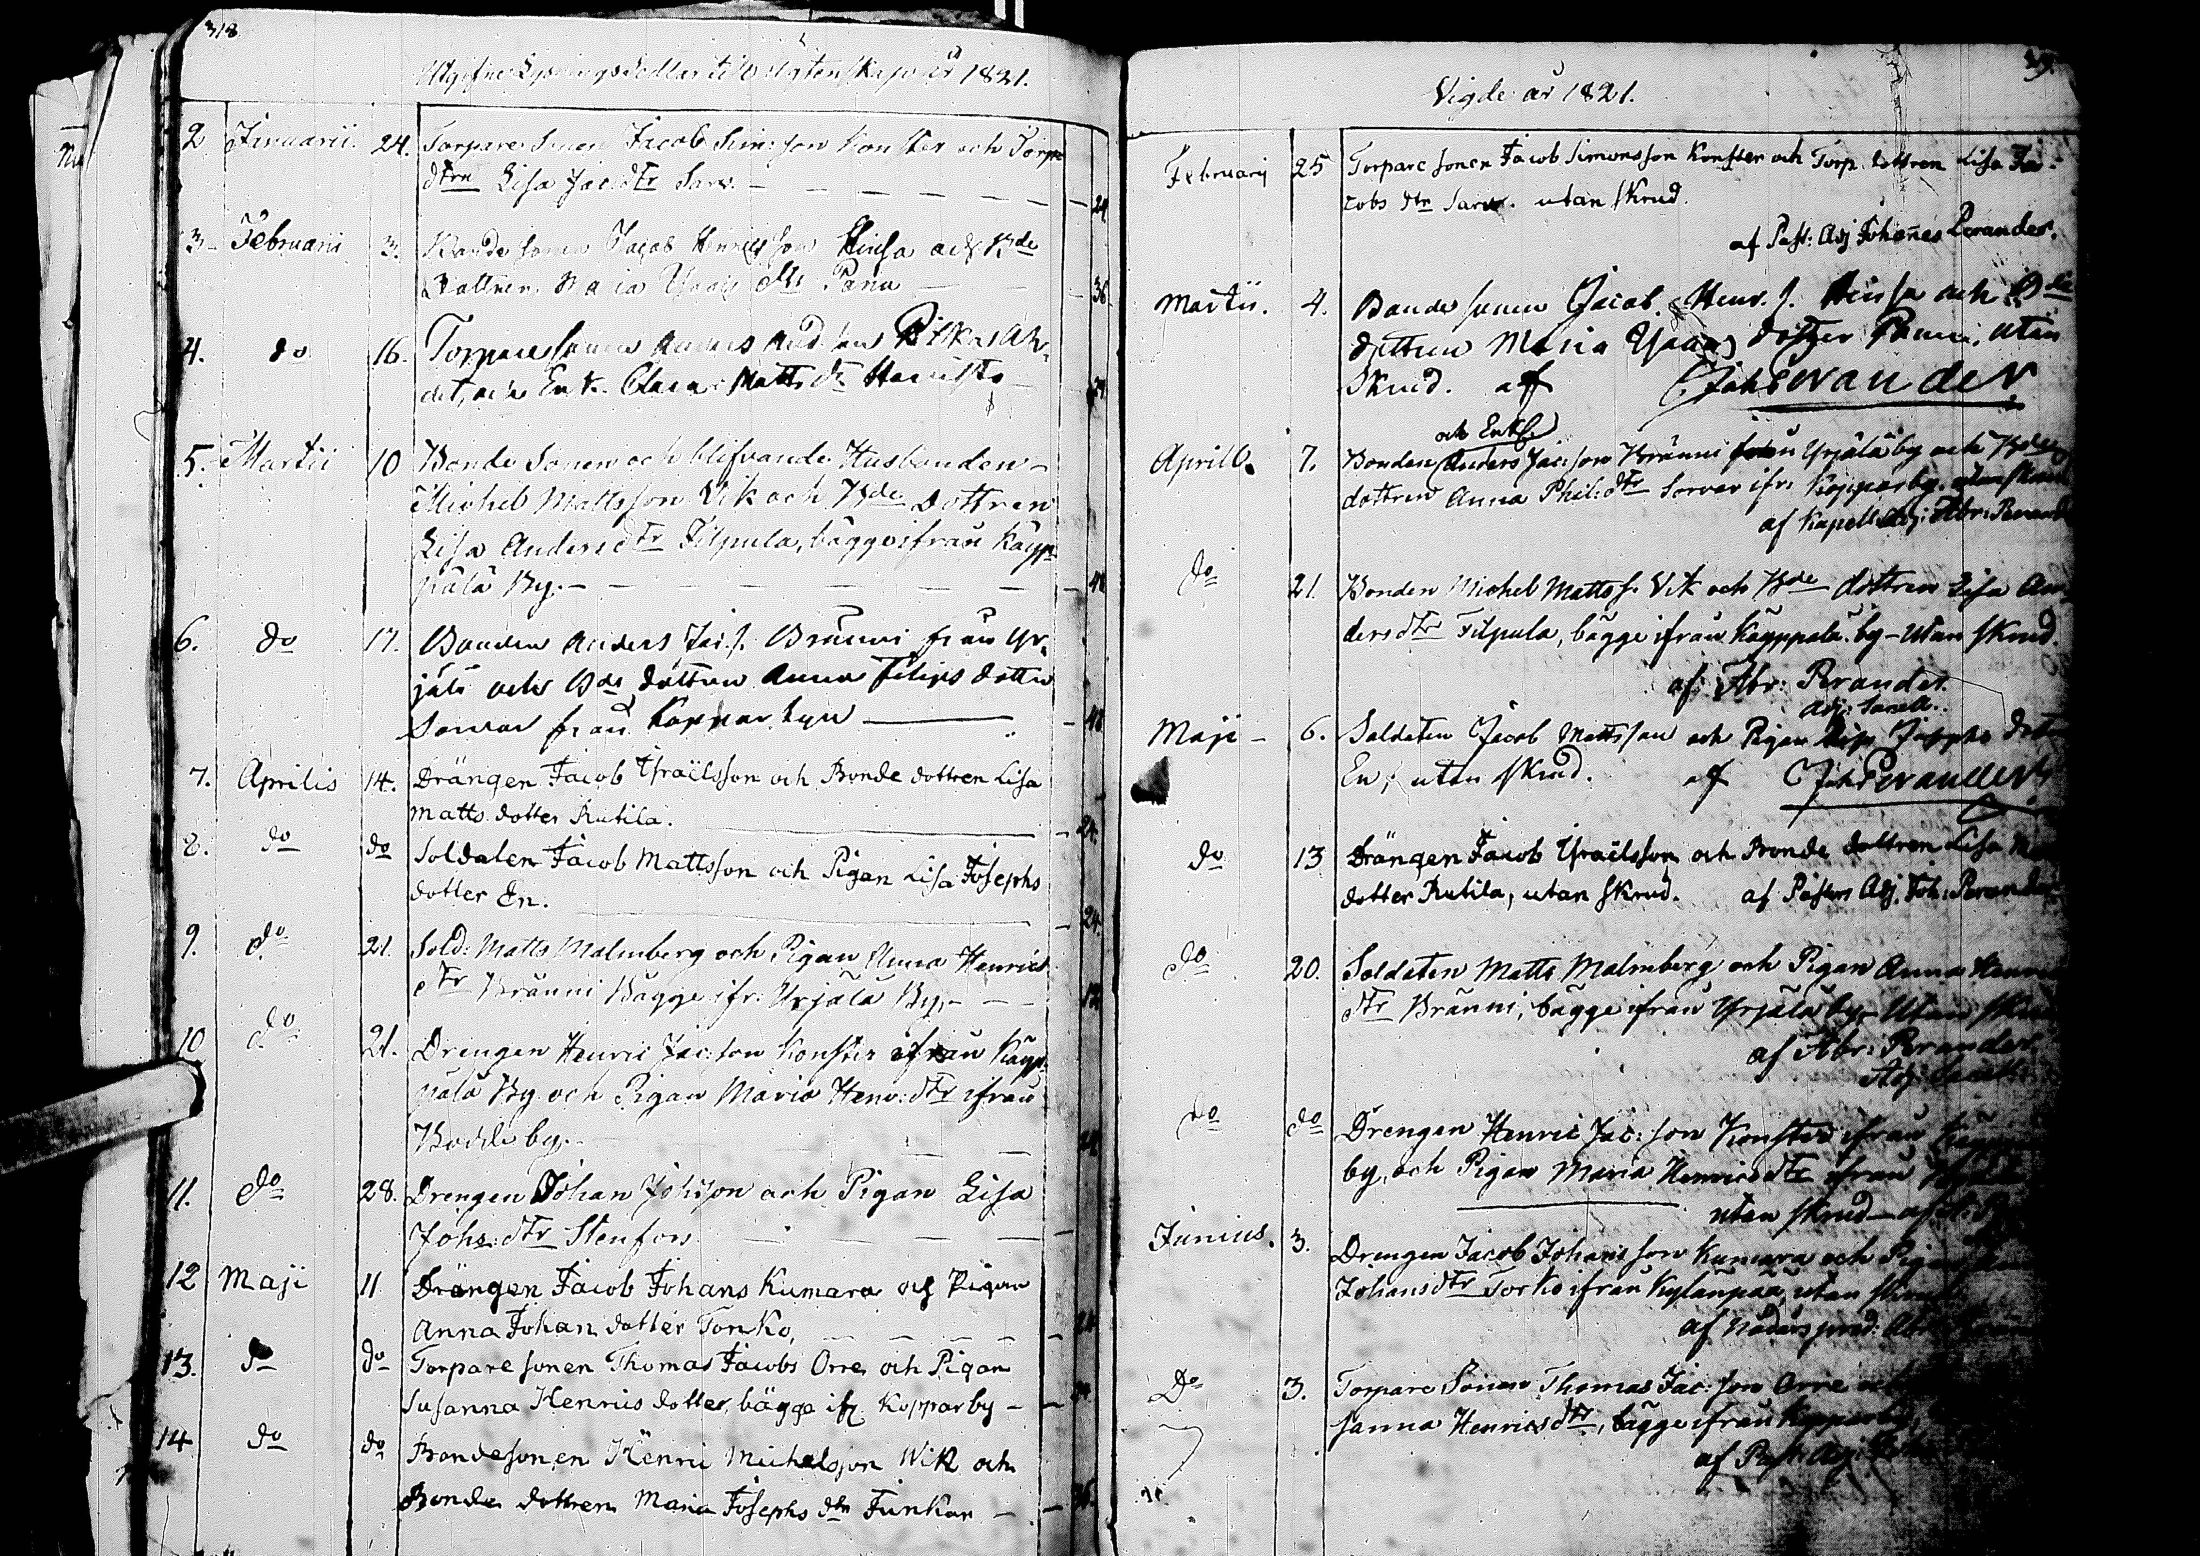 318
Utgifne Lysnings Sedlar til Ägtenskap år 1821.
2 Januarii 24. Torpare Sonen Jacob Sim:son Konster och Torp
dtrn Lisa Jac: dtr Sarv. 24
3 Februarii 3. Bonde Sonen Jacob Henricsson Hinsa och Bde
Dottren Maria dtr Panu 36
4. do 16. Torpare Sonen Anders And:son
det, och Enk. Clara Matts dr 24
5. Martii 10 Bonde Sonen och blifvande Husbonden
Michel Mattsson Vik och Bde Dottren
Lisa Anders dtr Filpula, bägge ifrån Käyp-
pälä By. 48
6. do 17. Bonden Anders Jac. s. Bränni från Yr-
jälä och Bde dottren Anna Filips dotter
Sorvar från Kopparbyn 48
7. Aprilis 14. Drängen Jacob Israëlsson och Bonde dottren Lisa
Matts dotter Rutila. 24
8. do do Soldaten Jacob Mattsson och Pigan Lisa Josephs
dotter En. 24.
9. do 21. Sold: Matts Malmberg och Pigan Anna Henrics
dtr Bränni Bägge ifr: Yrjälä By, 12
10 do 21. Drengen Henric Jac:son Konster ifrån Käyp-
pälä By och Pigan Maria Henr: dtr ifrån
by. 24
11. do 28. Drengen Johan Johsson och Pigan Lisa
Johs: dtr Stenfors
12 Maji 11 Drängen Jacob Johans Kumara och Pigan
Anna Johan dotter Torko, 24
13. do do Torpare sonen Thomas Jacobs Orre och Pigan
Susanna Henrics dotter, bägge ifr. Kopparby 24
14 do do Bondesonen Henric Michelsson Wik och
Bonde dottren Maria Josephs dtr Junkar 36.
Vigde år 1821.
Februarij 25 Torpare sonen Jacob Simonsson Konster och Torp. dottren Lisa Ja-
cobs dtr Sarv. utan skrud.
af Past: Adj Johannes Perander.
Martii. 4. Bonde sonen Jacob. Henr. s. Hinsa och Bde
dottren Maria dotter Panu, utan
Skrud. af Joh Perander
och Enkl.
Aprill. 7. Bonden Anders Jac:son Bränni från Yrjälä by och Bde
dottren Anna Phil: dtr Sorvar ifr: Kopparby. utan skrud
af Kapells Adj: Abr: Perander
do 21. Bonden Michel Matts s. Vik och Bde dottren Lisa An-
ders dtr Filpula, bägge ifrån Käyppälä by - Utan skrud.
af Abr: Perander
Adj: Sacell.
Maji - 6. Soldaten Jacob Mattsson och Pigan Lisa Josephs dotter
En, utan skrud. af Joh Perander
do 13 Drängen Jacob Israëlsson och Bonde dottren Lisa
dotter Rutila, utan skrud. af Pastors Adj. Joh: Perander
do 20. Soldaten Matts Malmberg och Pigan Anna
dtr Bränni, bägge ifrån Yrjälä by - Utan
af Abr: Perander
Adj: Sacell
do do Drengen Henric Jac:son Konster ifrån
by, och Pigan Maria Henrics dtr ifrån
utan skrud af
Junius. 3. Drengen Jacob Johansson Kumara och Pigan
Johans dtr Torko ifrån Kylänpää, utan
af
Do 3. Torpare Sonen Thomas Jac:son Orre och
sanna Henrics dtr, bägge ifrån Kopparby,
af Past. Adj: